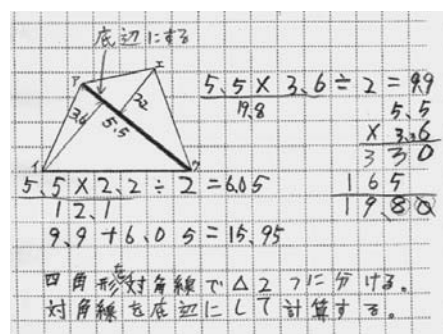 底辺にする
ア
エ
3.6
5.5
2.2
イ
ウ
5.5×3.6÷2=9.9
19.8
5.5
×3.6
330
165
19.80
5.5×2.2÷2=6.05
12.1
9.9+6.05=15.95
四角形を対角線で△2つに分ける。
対角線を底辺にして計算する。